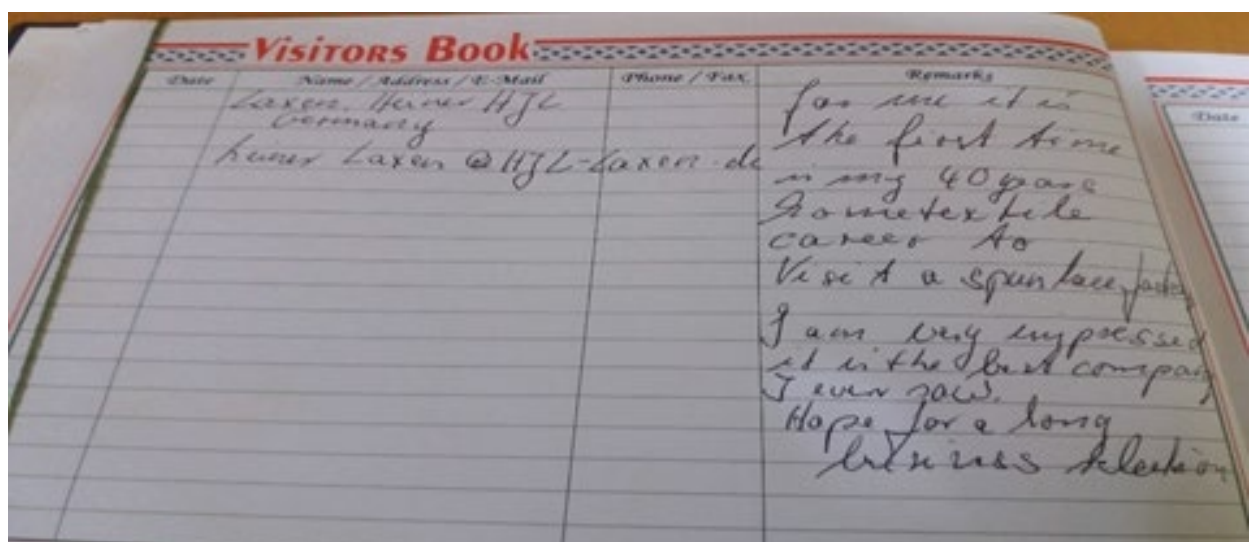 Visitors Book
Date Name / Address / E-Mail Phone / Fax. Remarks
Laxen, Heiner HJL
Germany
heiner Laxen @ HJL-Laxen.de
for me it is
the first time
in my 40 years
Hometextile
career to
Visit a spunlace factory
I am very impressed
it is the best company
I ever saw.
Hope for a long
business relation
Date